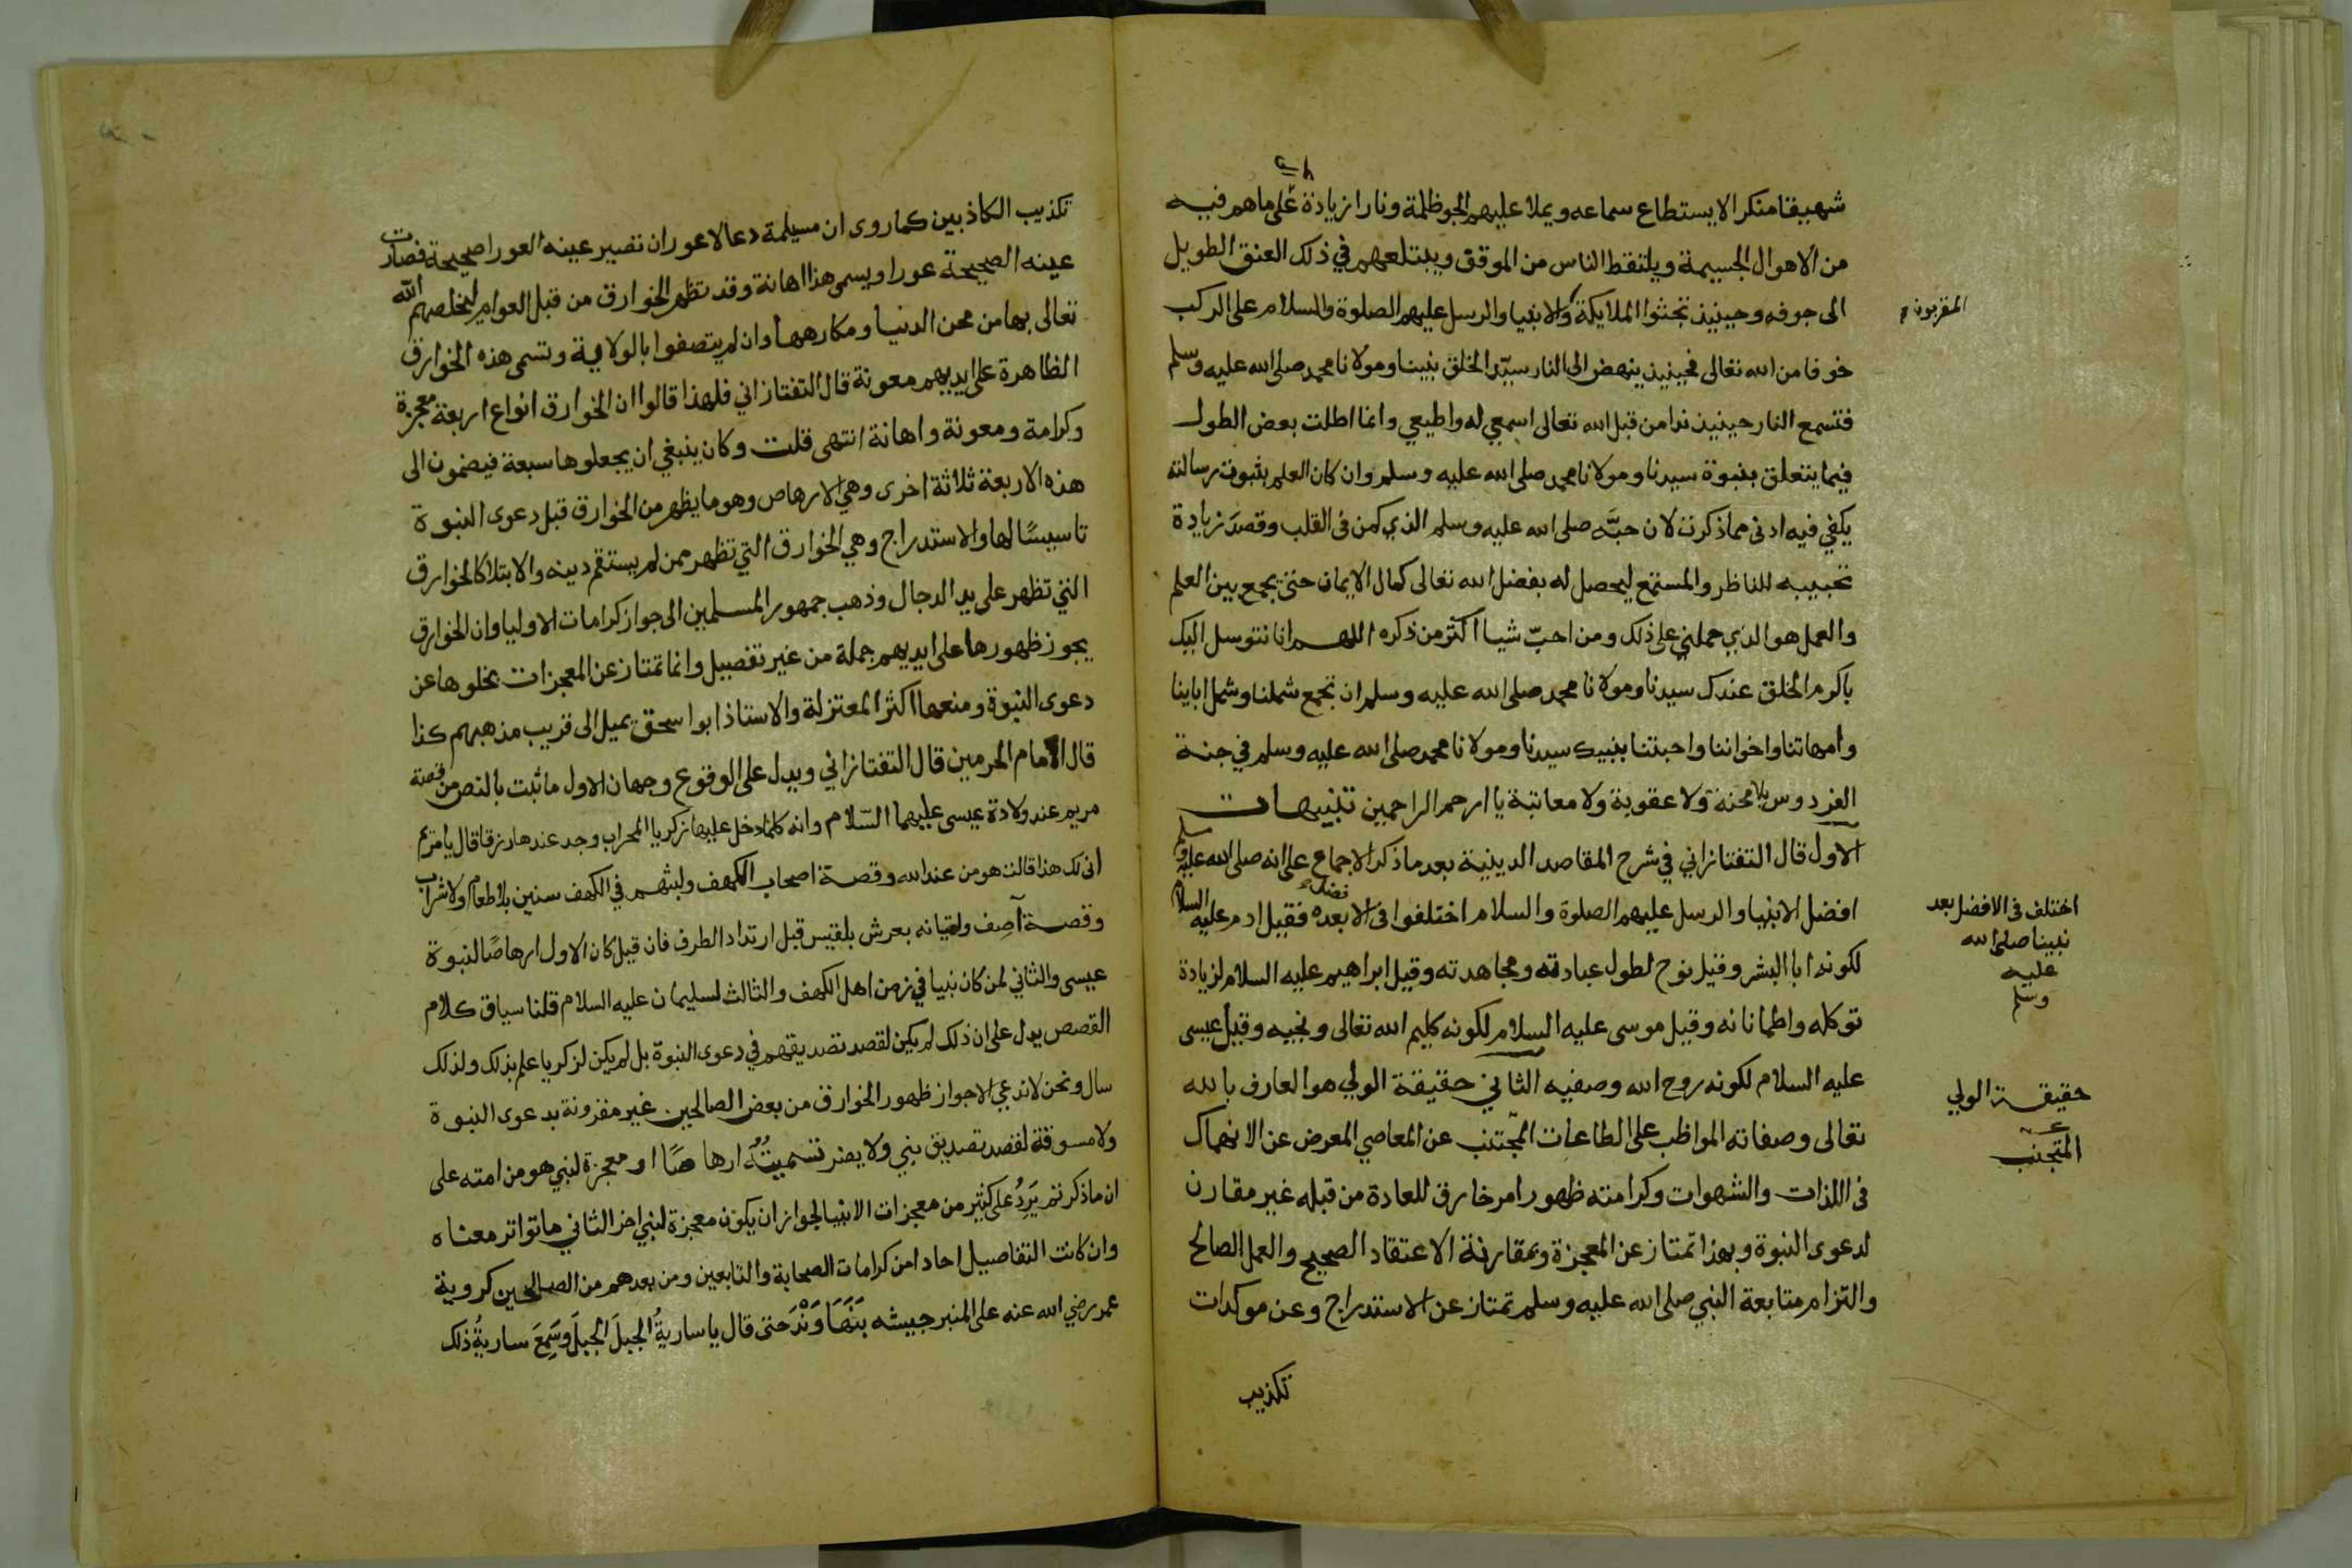 شهيقا منكرا لا يستطاع سماعه ويملا عليهم الجو ظلمة ونارا زيادة على ما هم فيه
من الاهوال الجسيمة ويلتقط الناس من الموقف ويبتلعهم في ذلك العنق الطويل
الى جوفه وحينيذ تجثوا الملايكة والانبيا والرسل عليهم الصلوة والسلام على الركب
المقربون
خوفا من الله تعالى فحينيذ ينهض الى النار سيد الخلق نبينا ومولانا محمد صلى الله عليه وسلم
فتسمع النار حينيذ ندا من قبل الله تعالى اسمعي له واطيعي وانما اطلت بعض الطول
فيما يتعلق بنبوة سيدنا ومولانا محمد صلى الله عليه وسلم وان كان العلم بثبوت رسالته
يكفي فيه ادنى مما ذكرت لان حبَّه صلى الله عليه وسلم الذي كمن في القلب وقصدَ زيادة
تحبيبه للناظر والمستمع ليحصل له بفضل الله تعالى كمال الايمان حتى يجمع بين العلم
والعمل هو الذي حملني على ذلك ومن احبّ شيا اكثر من ذكره اللهم انا نتوسل اليك
باكرم الخلق عندك سيدنا ومولانا محمد صلى الله عليه وسلم ان تجمع شملنا وشمل اباينا
وامهاتنا واخواننا واحبتنا بنبيك سيدنا ومولانا محمد صلى الله عليه وسلم في جنة
الفردوس بلا محنة ولا عقوبة ولا معاتبة يا ارحم الراحمين تنبيهات
الاول قال التفتازاني في شرح المقاصد الدينية بعد ما ذكر الاجماع على انه صلى الله عليه وسلم
افضل الانبيا والرسل عليهم الصلوة والسلام اختلفوا في الافضل بعده فقيل ادم عليه السلام
اختلف في الافضل بعد
نبينا صلى الله
عليه
وسلم
لكونه ابا البشر وقيل نوح لطول عبادته ومجاهدته وقيل ابراهيم عليه السلام لزيادة
توكله واطمانانه وقيل موسى عليه السلام لكونه كليم الله تعالى ونجيه وقيل عيسى
عليه السلام لكونه روح الله وصفيه الثاني حقيقة الولي هو العارف بالله
حقيقة الولي
تعالى وصفاته المواظب على الطاعات المجتنب عن المعاصي المعرض عن الانهماك
المتجنب
في اللذات والشهوات وكرامته ظهور امر خارق للعادة من قبله غير مقارن
لدعوى النبوة وبهذا تمتاز عن المعجزة وبمقارنة الاعتقاد الصحيح والعمل الصالح
والتزام متابعة النبي صلى الله عليه وسلم تمتاز عن الاستدراج وعن موكدات
تكذيب
تكذيب الكاذبين كما روى ان مسيلمة دعا لاعور ان تصير عينه العورا صحيحة فصارت
عينه الصحيحة عورا ويسمى هذا اهانة وقد تظهر الخوارق من قبل العوام ليخلصهم الله
تعالى بها من محن الدنيا ومكارهها وان لم يتصفوا بالولاية وتسمى هذه الخوارق
الظاهرة على ايديهم معونة قال التفتازاني فلهذا قالوا ان الخوارق انواع اربعة معجزة
وكرامة ومعونة واهانة انتهى قلت وكان ينبغي ان يجعلوها سبعة فيضمون الى
هذه الاربعة ثلاثة اخرى وهي الارهاص وهو ما يظهر من الخوارق قبل دعوى النبوة
تاسيسًا لها والاستدراج وهي الخوارق التي تظهر ممن لم يستقم دينه والابتلا كالخوارق
التي تظهر على يد الدجال وذهب جمهور المسلمين الى جواز كرامات الاوليا وان الخوارق
يجوز ظهورها على ايديهم جملة من غير تفصيل وانما تمتاز عن المعجزات بخلوها عن
دعوى النبوة ومنعها اكثر المعتزلة والاستاذ ابو اسحق يميل الى قريب مذهبهم كذا
قال الامام الحرمين قال التفتازاني ويدل على الوقوع وجهان الاول ما ثبت بالنص من قصة
مريم عند ولادة عيسى عليهما السّلام وانه كلما دخل عليها زكريا المحراب وجد عندها رزقا قال يا مريم
انى لك هذا قالت هو من عند الله وقصة اصحاب الكهف ولبثهم في الكهف سنين بلا طعام ولا شراب
وقصة آصف واتيانه بعرش بلقيس قبل ارتداد الطرف فان قيل كان الاول ارهاصًا لنبوة
عيسى والثاني لمن كان نبيا في زمن اهل الكهف والثالث لسليمان عليه السلام قلنا سياق كلام
القصص يدل على ان ذلك لم يكن لقصد تصديقهم في دعوى النبوة بل لم يكن لزكريا علم بذلك ولذلك
سال ونحن لا ندعي الا جواز ظهور الخوارق من بعض الصالحين غير مقرونة بدعوى النبوة
ولا مسوقة لقصد تصديق نبي ولا يضر تسميتُهُ ارهاصًا او معجزة لنبي هو من امته على
ان ما ذكرتم يَرِدُ على كثير من معجزات الانبيا لجواز ان يكون معجزة لنبي اخر الثاني ما تواتر معناه
وان كانت التفاصيل احادا من كرامات الصحابة والتابعين ومن بعدهم من الصالحين كروية
عمر رضي الله عنه على المنبر جيشه بَنَهَاوَنْدَ حتى قال يا ساريةُ الجبلَ الجبلَ وسَمِعَ ساريةُ ذلك